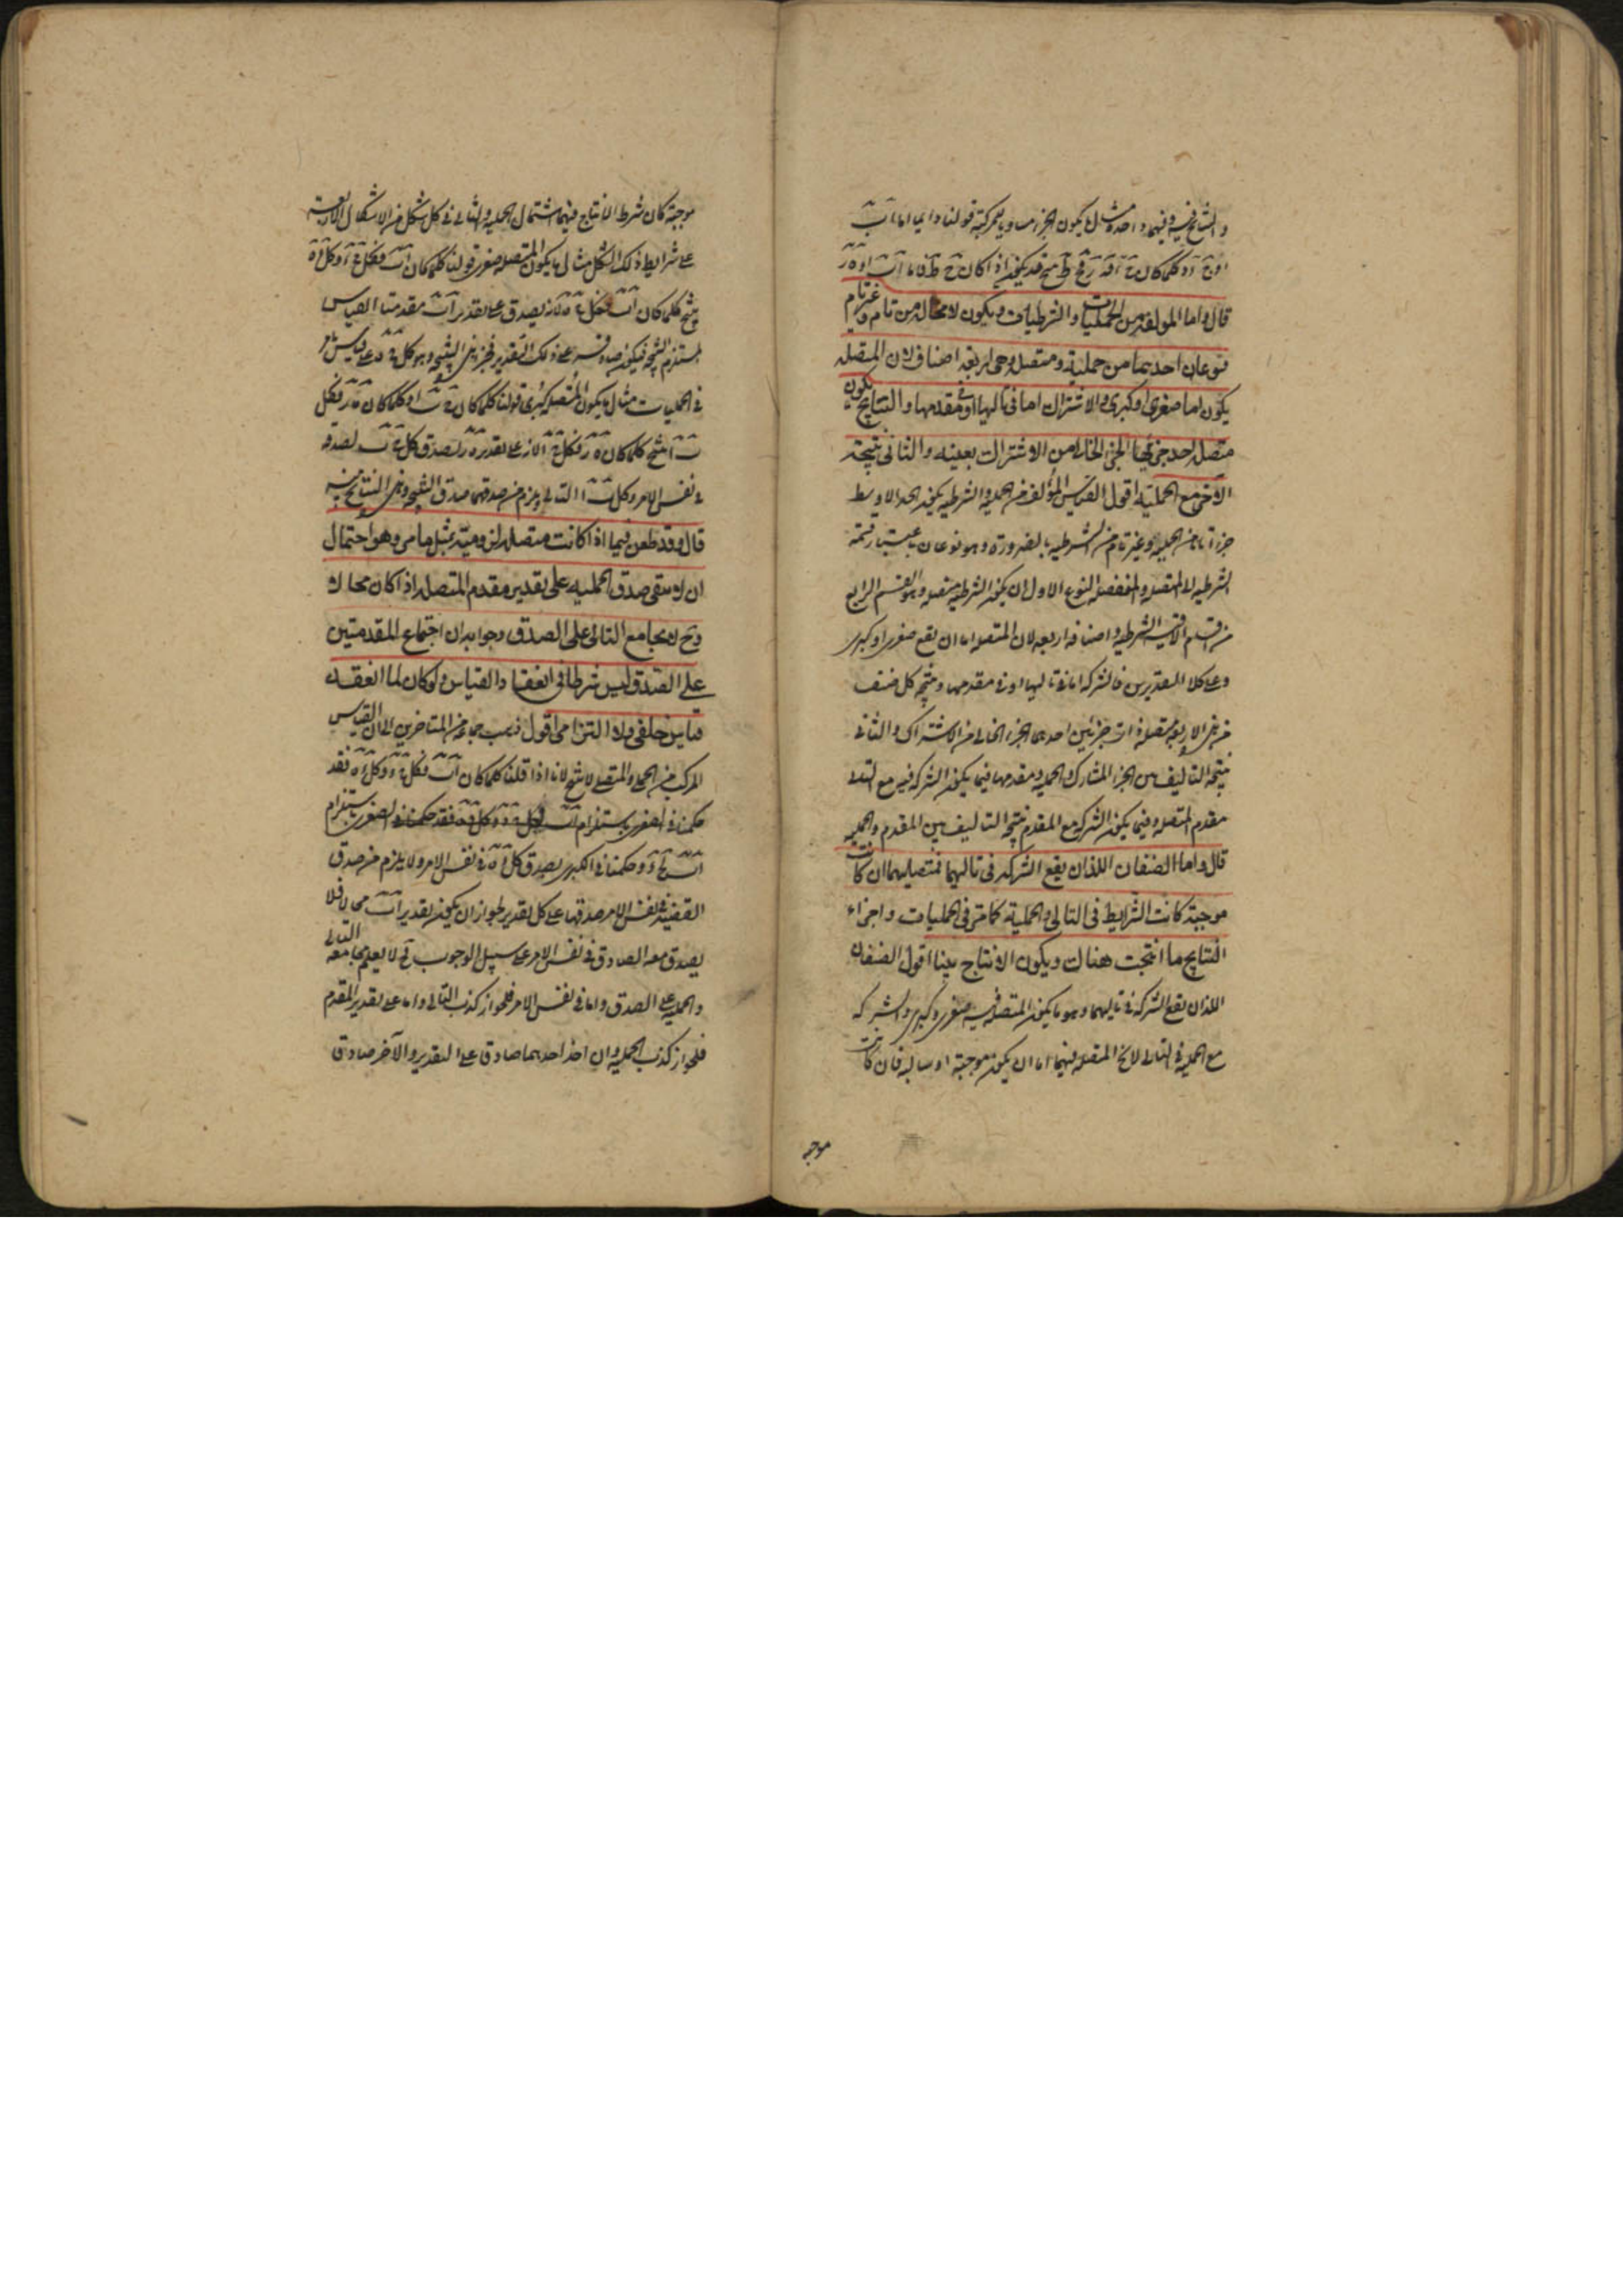 والنتايج فيه وفيهما واحدة مثال ما يكون الجزء مساويا للمركبة قولنا دايما اما اب
قال واما المؤلفة من الحمليات والشرطيات ويكون لا محالة من تام وغير تام
فنوعان احدهما من حملية ومتصلة وهى اربعة اصناف لان المتصلة
يكون اما صغرى او كبرى والاشتراك اما فى تاليها او فى مقدمها والنتايج يكون
متصلة احد جزئيها الجزء الخالى من الاشتراك بعينه والثانى نتيجة
الآخر مع الحملية اقول القياس المؤلف من الحملية والشرطية يكون الحد الاوسط
جزءا تاما من الحملية وغير تام من الشرطية بالضرورة وهو نوعان باعتبار قسمة
الشرطية الى المتصلة والمنفصلة النوع الاول ان يكون الشرطية متصلة وهو القسم الرابع
من اقسام الاقيسة الشرطية واصنافه اربعة لان المتصلة اما ان يقع صغرى او كبرى
وعلى كلا التقديرين فالشركة اما فى تاليها او فى مقدمها وينتج كل صنف
من هذه الاربعة متصلة ذات جزئين احدهما الجزء الخالى من الاشتراك والثانى
نتيجة التاليف من الجزء المشارك والحملية ومقدمها فيما يكون الشركة فيه مع التالى
مقدم المتصلة وفيما يكون الشركة مع المقدم نتيجة التاليف بين المقدم والحملية
قال واما الصنفان اللذان يقع الشركة فى تاليهما فمتصليهما ان كانت
موجبة كانت الشرايط فى التالى والحملية كما مر فى الحمليات واجزاء
النتايج ما انتجت هناك ويكون الانتاج بينا اقول الصنفان
اللذان يقع الشركة فى تاليهما وهو ما يكون المتصلة فيه صغرى وكبرى والشركة
مع الحملية فى التالى لا يخ المتصلة فيهما اما ان يكون موجبة او سالبة فان كانت
موجبة
موجبة كان شرط الانتاج فيهما اشتمال الحملية والتالى فى كل شكل من الاشكال الاربعة
على شرايط ذلك الشكل مثال ما يكون المتصلة صغرى قولنا كلما كان اب فكل ج د وكل د ه
ينتج كلما كان اب فكل ج ه لانه يصدق على تقدير اب مقدمتا القياس
المستلزم للنتيجة فيكون صادقة على ذلك التقدير فجزء هذه النتيجة وهو كل ج ه على قياس ما مر
فى الحمليات مثال ما يكون المتصلة كبرى قولنا كل ج ب وكلما كان ه ر فكل
ب ا ينتج كلما كان ه ر فكل ج ا لانه على تقدير ه ر يصدق كل ج ب لصدقه
فى نفس الامر وكل ب ا التالى ويلزم من صدقهما صدق النتيجة وهى النتايج فيه
قال وقد طعن فيما اذا كانت متصلة لزومية بمثل ما مر وهو احتمال
ان لا يبقى صدق الحملية على تقدير مقدم المتصلة اذا كان محالا
وح لا يجامع التالى على الصدق وجوابه ان اجتماع المقدمتين
على الصدق ليس شرطا فى انعقاد القياس ولو كان لما انعقد
قياس خلفى ولا التزامى اقول ذهب جماعة من المتاخرين الى ان القياس
المركب من الحملى والمتصلة لا ينتج لانا اذا قلنا كلما كان اب فكل ج د وكل د ه فقد
حكمنا فى الصغرى باستلزام اب فكل ج د وكل د ه فقد حكمنا فى الصغرى باستلزام
اب ج د وحكمنا فى الكبرى بصدق كل د ه فى نفس الامر ولا يلزم من صدق
القضية فى نفس الامر صدقها على كل تقدير لجواز ان يكون تقدير اب محالا فلا
يصدق معه الصادق فى نفس الامر على سبيل الوجوب فح لا يعلم مجامعة التالى
والحملية على الصدق واما فى نفس الامر فلجواز كذب التالى واما على تقدير المقدم
فلجواز كذب الحملية وان اخذ احدهما صادق على التقدير والآخر صادق